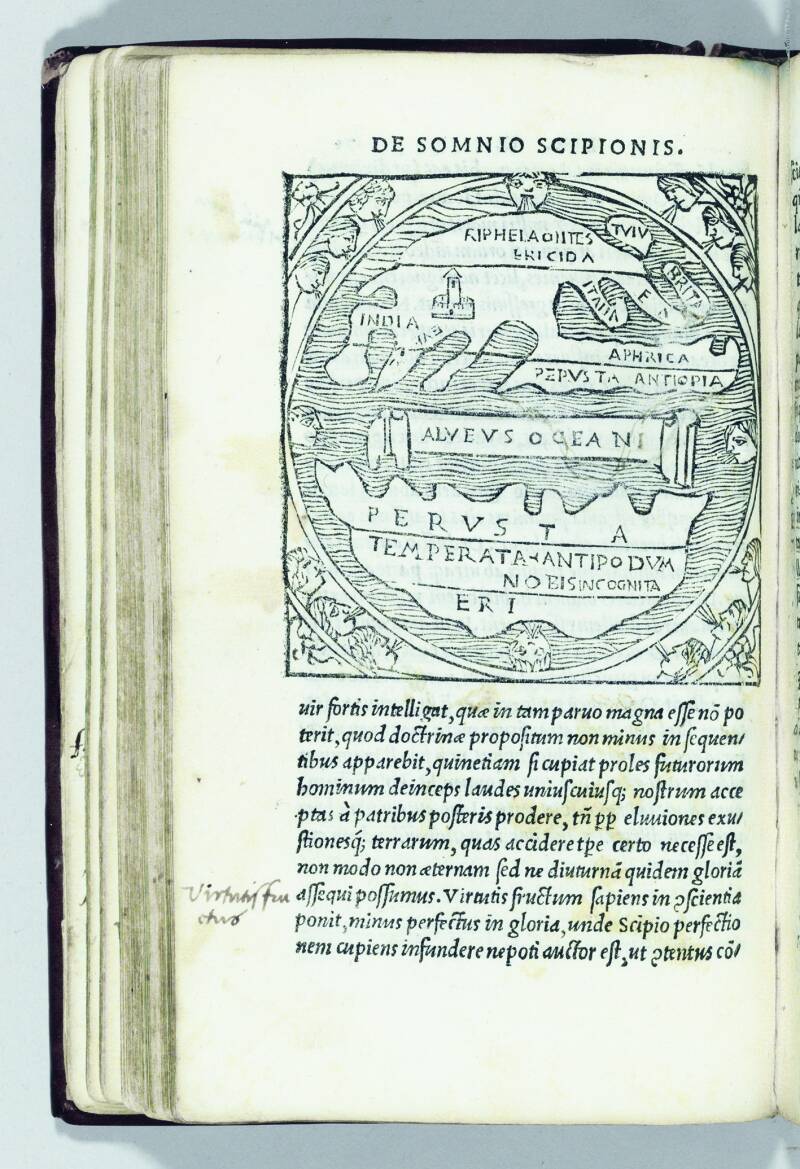 DE SOMNIO SCIPIONIS.
RIPHEI AONTES
TVIV
ERICIDA
BRITA
ITALIA
E
INDIA
APHRICA
PERVSTA ANTIOPIA
ALVEVS OCEANI
PERVSTA
TEMPERATA ANTIPODVM
NOBIS INCOGNITA
ERI
uir fortis intelligat, quæ in tam paruo magna esse nō po
terit, quod doctrinæ propositum non minus in sequen/
tibus apparebit, quinetiam si cupiat proles futurorum
hominum deinceps laudes uniuscuiusq; nostrum acce
ptas à patribus posteris prodere, tn̄ pp̱ eluuiones exu/
stionesq́; terrarum, quas accidere tp̄e certo necesse est,
non modo non æternam sed ne diuturnā quidem gloriā
assequi possumus. Virtutis fructum sapiens in ꝯscientia
ponit, minus perfectus in gloria, unde Scipio perfectio
nem cupiens infundere nepoti auctor est, ut ꝯtentus cō/
Virtutis fru
ctus